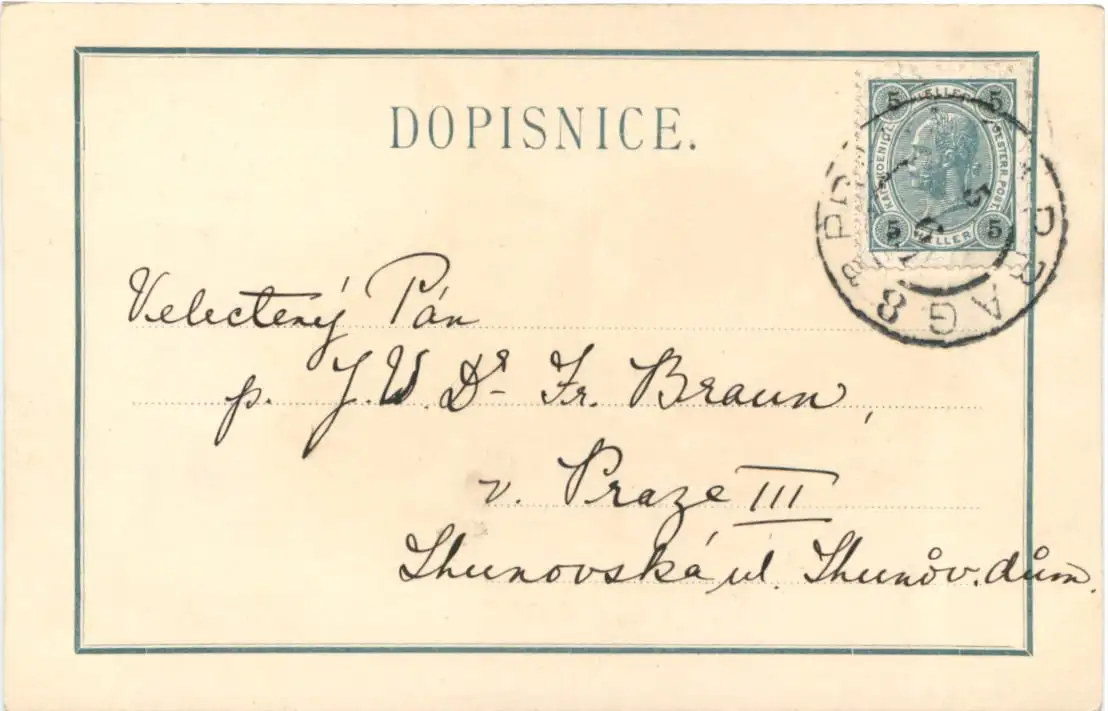 DOPISNICE.
5 HELLER 5
KAIS. KOENIGL. OESTERR. POST.
5 HELLER 5
PRAG 8
Velectený Pán
p. J.W. Dr Fr. Braun,
v. Praze III
Thunovská ul. Thunův. dům.